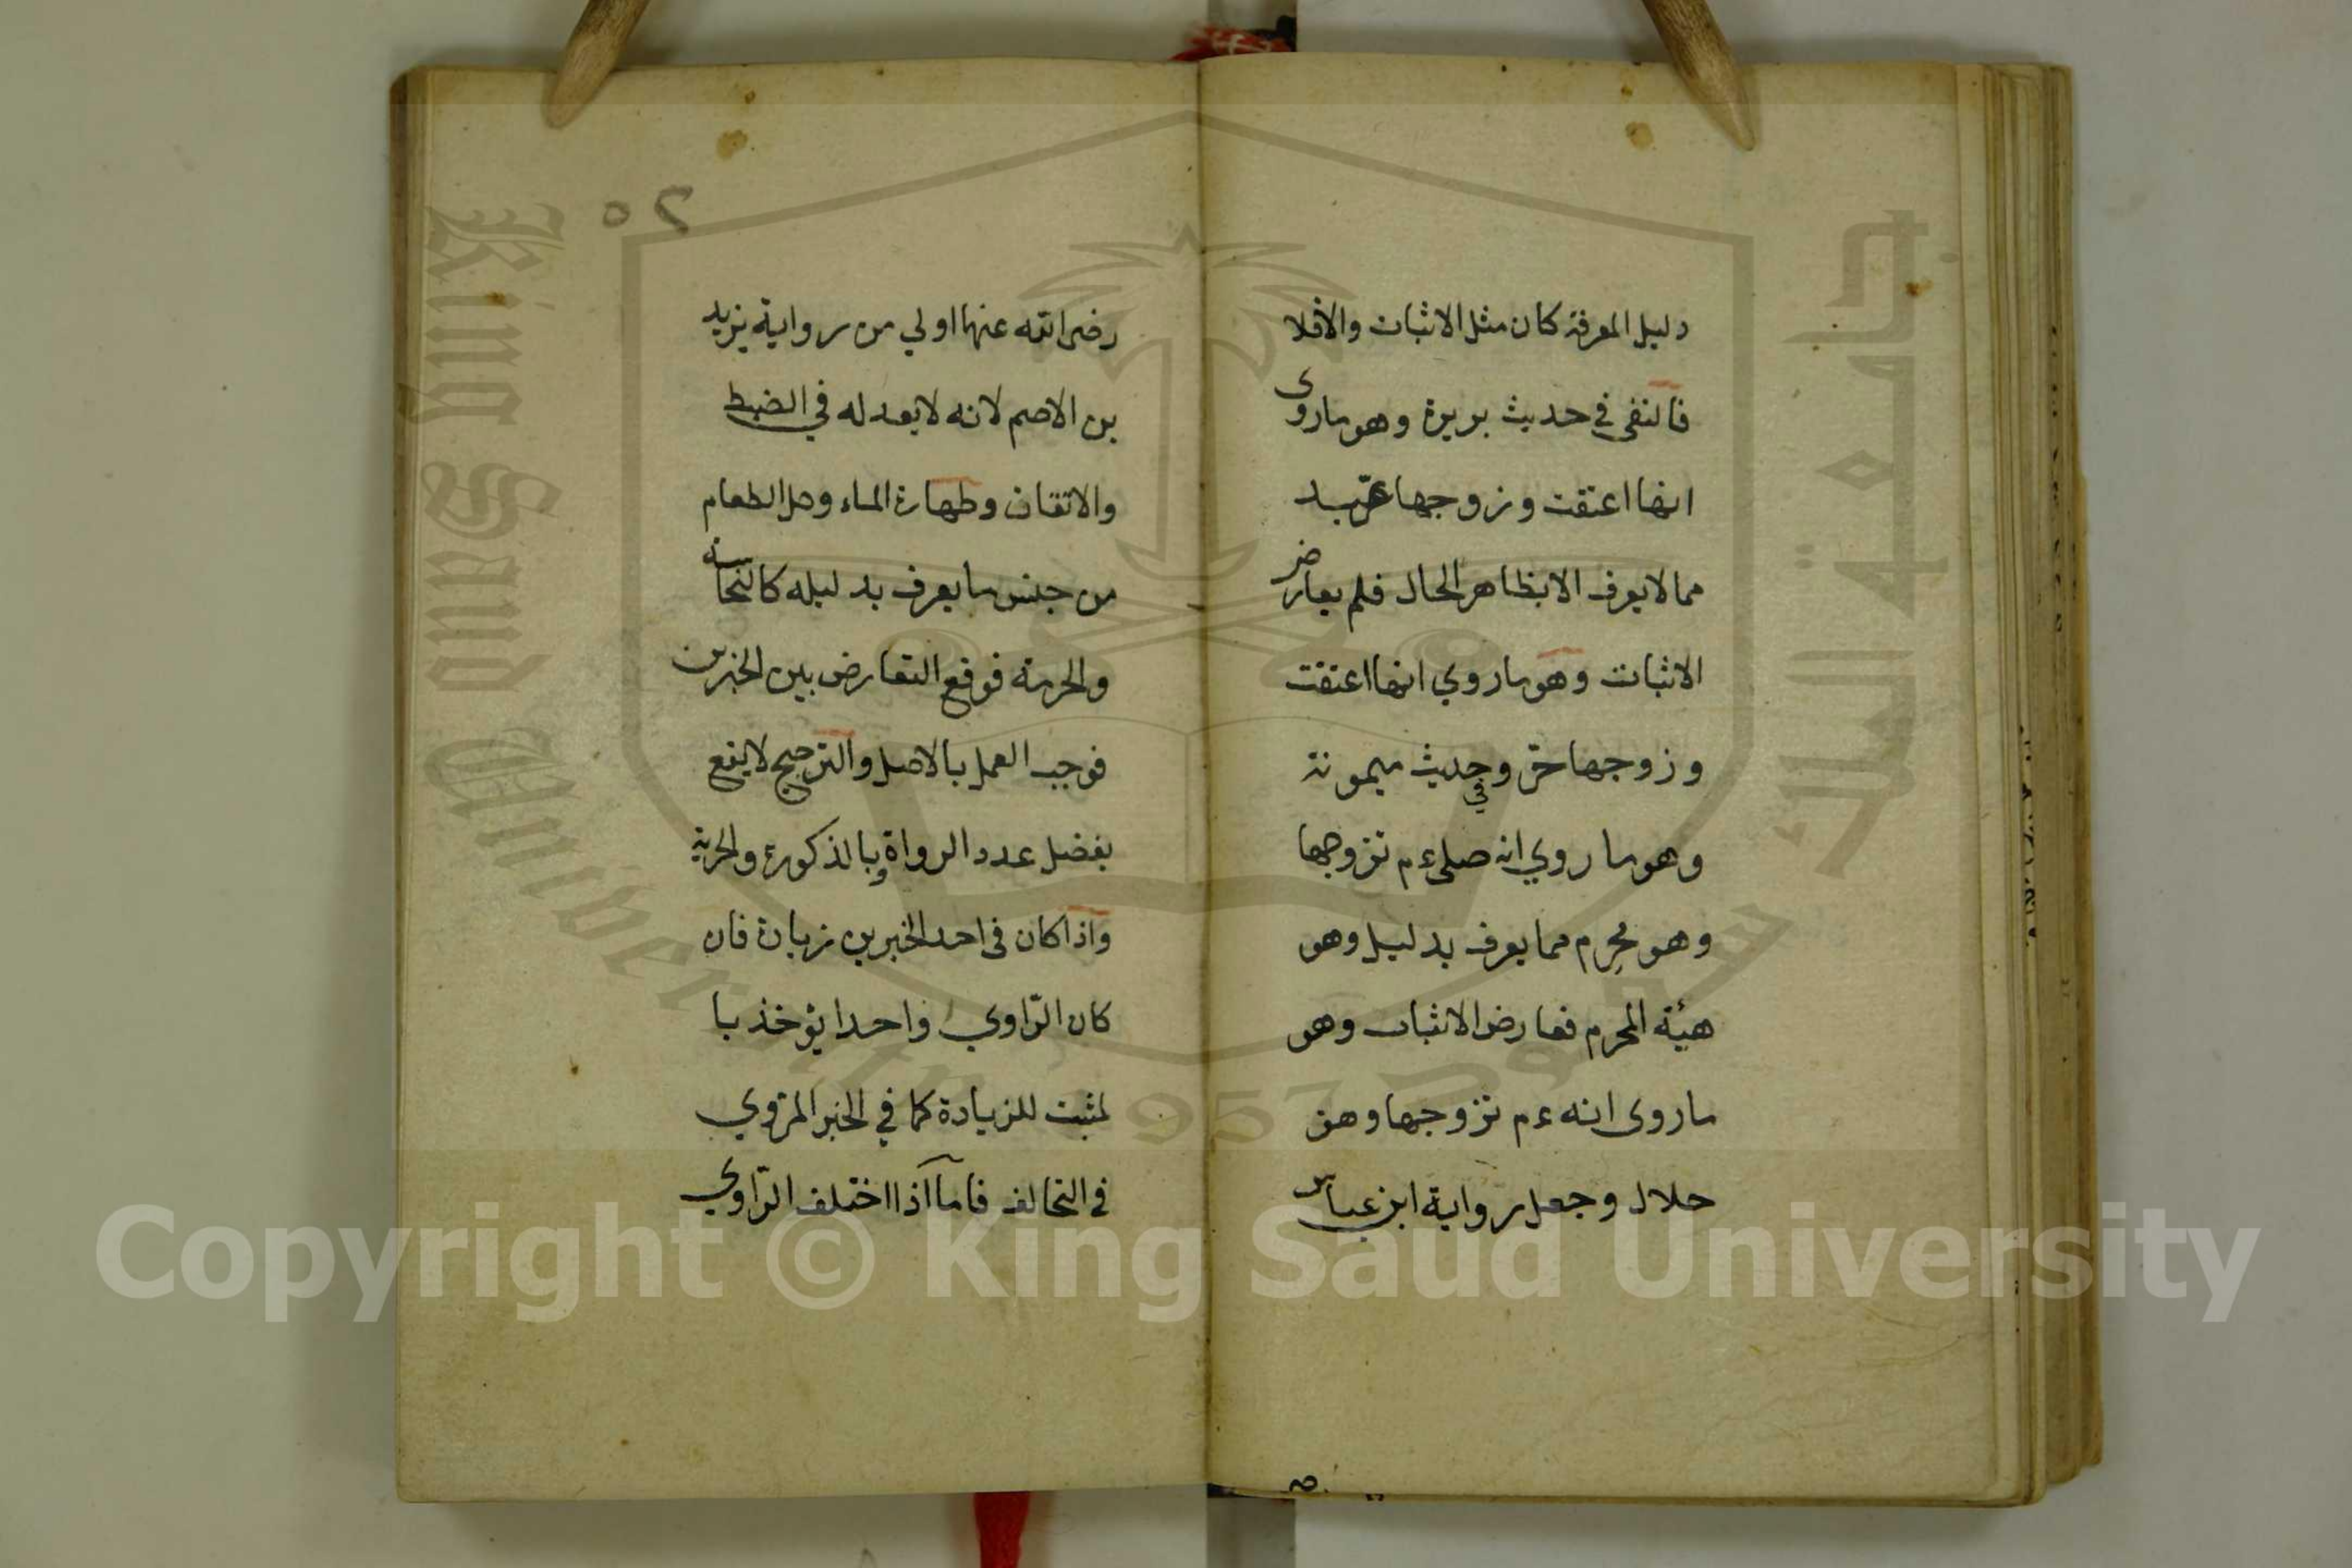 دليل المعرفة كان مثل الاثبات والافلا
فالنفى في حديث بريرة وهو ماروى
انها اعتقت وزوجها عبد
مما لا يعرف الا بظاهر الحال فلم يعارض
الاثبات وهو ماروي انها اعتقت
وزوجها حرّ وفي حديث ميمونة
وهو ما روي انه صلى ءم تزوجها
وهو محرم مما يعرف بدليل وهو
هيئة المحرم فعارض الاثبات وهو
ماروى انه ءم تزوجها وهو
حلال وجعل رواية ابن عباس
٢٥
رضى الله عنهما اولي من رواية يزيد
بن الاصم لانه لا يعدله في الضبط
والاتقان وطهارة الماء وحل الطعام
من جنس ما يعرف بدليله كالنجاسة
والحرمة فوقع التعارض بين الخبرين
فوجب العمل بالاصل والترجيح لا يقع
بفضل عدد الرواة وبالذكورة والحرية
واذا كان فى احد الخبرين زيادة فان
كان الرّاوي واحدا يؤخذ با
لمثبت للزيادة كما في الخبر المروي
في التحالف فاما اذا اختلف الرّاوي
King Saud University
جامعة الملك سعود
1957
Copyright © King Saud University